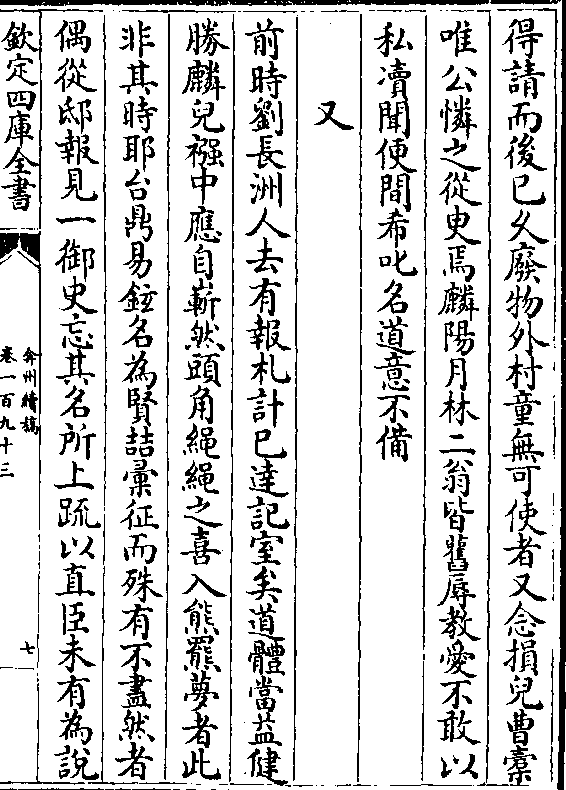 得請而後已久廢物外村童無可使者又念損兒曹橐
唯公憐之從臾焉麟陽月林二翁皆舊辱教愛不敢以
私凟聞便間希叱名道意不備
又
前時劉長洲人去有報札計已達記室矣道體當益健
勝麟兒襁中應自嶄然頭角繩繩之喜入熊羆夢者此
非其時耶台鼎易鉉名為賢喆彙征而殊有不盡然者
偶從邸報見一御史忘其名所上疏以直臣未有為說
欽定四庫全書
弇州續稿
卷一百九十三
七